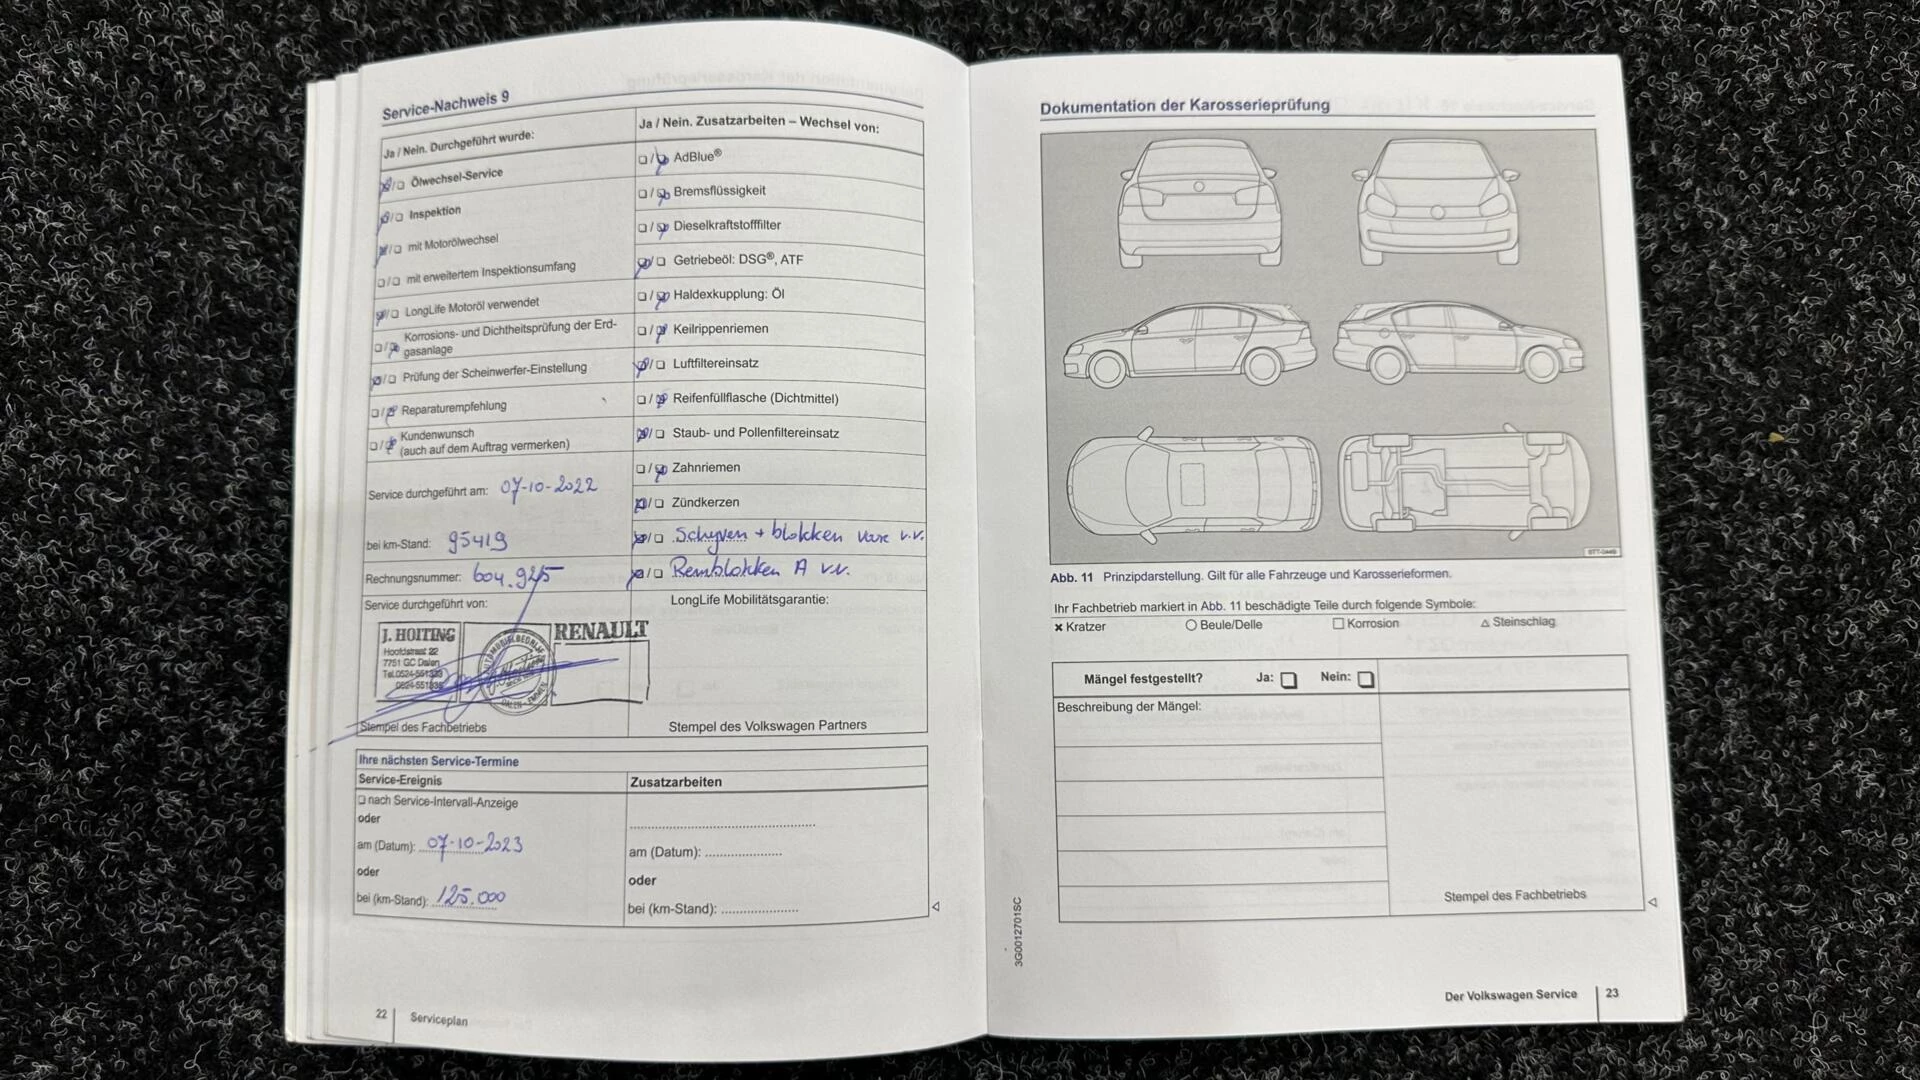 Service-Nachweis 9
Ja / Nein. Durchgeführt wurde:
Ölwechsel-Service
Inspektion
mit Motorölwechsel
mit erweitertem Inspektionsumfang
LongLife Motoröl verwendet
Korrosions- und Dichtheitsprüfung der Erd-
gasanlage
Prüfung der Scheinwerfer-Einstellung
Reparaturempfehlung
Kundenwunsch
(auch auf dem Auftrag vermerken)
Service durchgeführt am: 07-10-2022
bei km-Stand: 95419
Rechnungsnummer: 604.925
Service durchgeführt von:
J. HOITING
Hoofdstraat 22
7751 GC Dalen
Tel.0524-551333
0524-551835
AUTOMOBIELBEDRIJF
DALEN - EMMEN
RENAULT
Stempel des Fachbetriebs
Ja / Nein. Zusatzarbeiten – Wechsel von:
AdBlue®
Bremsflüssigkeit
Dieselkraftstofffilter
Getriebeöl: DSG®, ATF
Haldexkupplung: Öl
Keilrippenriemen
Luftfiltereinsatz
Reifenfüllflasche (Dichtmittel)
Staub- und Pollenfiltereinsatz
Zahnriemen
Zündkerzen
Schyven + blokken v.v.
Remblokken A v.v.
LongLife Mobilitätsgarantie:
Stempel des Volkswagen Partners
Ihre nächsten Service-Termine
Service-Ereignis
nach Service-Intervall-Anzeige
oder
am (Datum): 07-10-2023
oder
bei (km-Stand): 125.000
Zusatzarbeiten
am (Datum): ....................
oder
bei (km-Stand): ....................
22 Serviceplan
Dokumentation der Karosserieprüfung
Abb. 11 Prinzipdarstellung. Gilt für alle Fahrzeuge und Karosserieformen.
Ihr Fachbetrieb markiert in Abb. 11 beschädigte Teile durch folgende Symbole:
Kratzer Beule/Delle Korrosion Steinschlag
Mängel festgestellt? Ja: Nein:
Beschreibung der Mängel:
Stempel des Fachbetriebs
3G0012701SC
Der Volkswagen Service 23